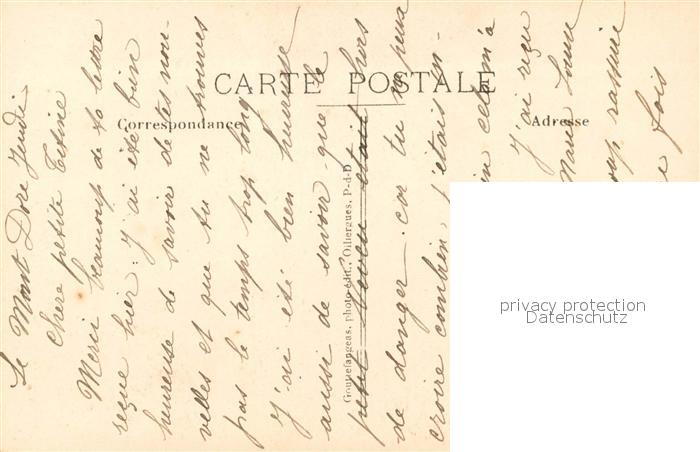 CARTE POSTALE
Correspondance
Adresse
Gouttefangeas, photo-édit., Olliergues, P-d-D
Le Mont Dore Jeudi
Chère petite Titine
Merci beaucoup de ta lettre
reçue hier. J'ai été bien
heureuse de savoir de tes nou-
velles et que tu ne trouves
pas le temps trop long
J'ai été bien heureuse
aussi de savoir que le
petit était hors
de danger. car tu ne peux
croire combien j'étais in-
cela m'a
J'ai reçu
Marie
rassurée
fois
privacy protection
Datenschutz